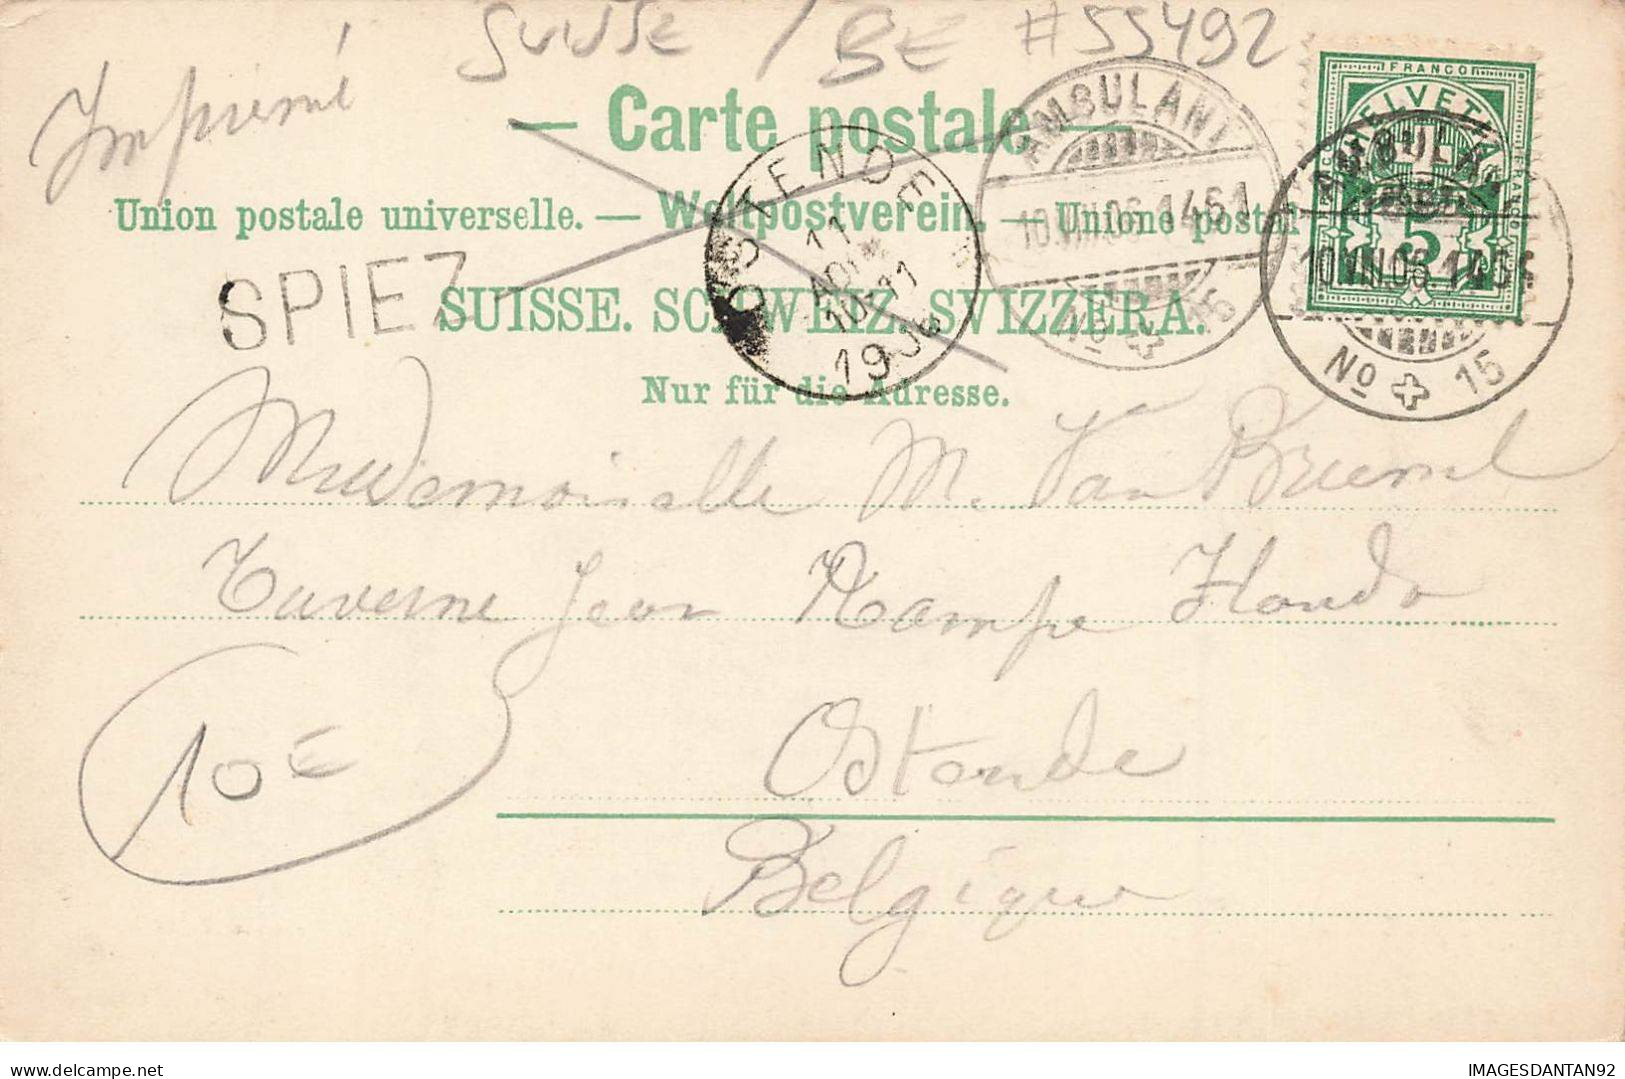 SUISSE / BE #55492
Imprimé
Carte postale
Union postale universelle. — Weltpostverein. — Unione postal
SPIEZ
SUISSE. SCHWEIZ. SVIZZERA.
Nur für die Adresse.
OSTENDE
11
10-11
1906
AMBULANT
10.VIII.06.1451
No 15
FRANCO
HELVETIA
FRANCO
5
AMBULANT
10.VIII.06.1451
No 15
Mademoiselle M. Van
Taverne Jean Rampe
Ostende
Belgique
10 €
IMAGESDANTAN92